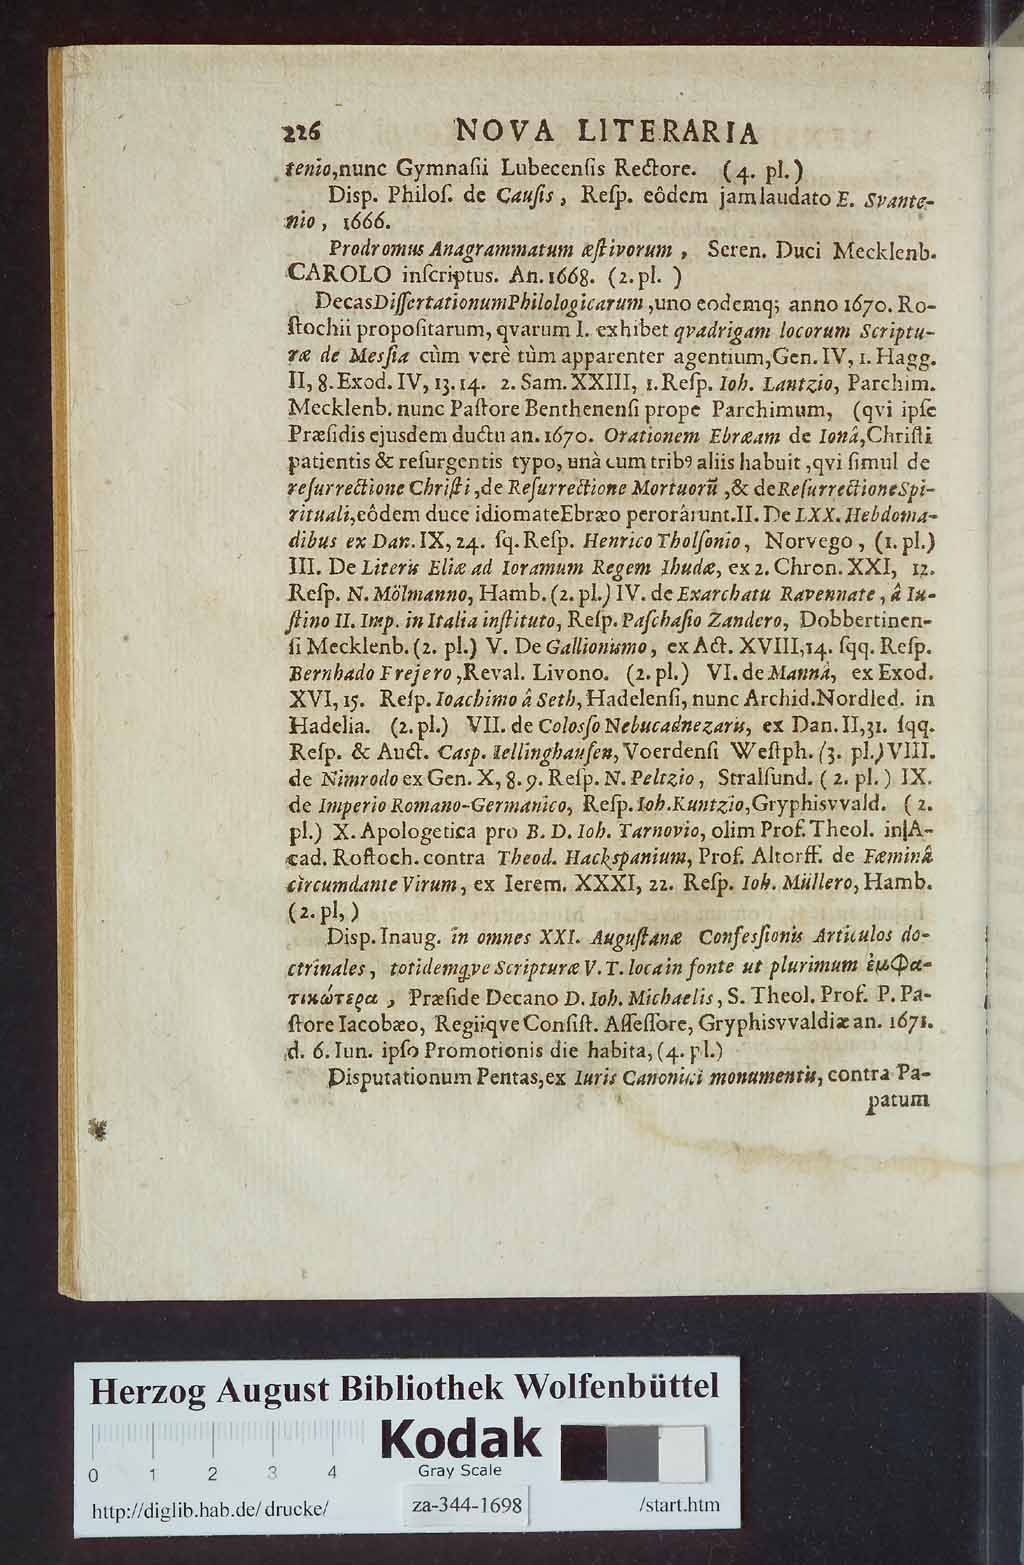 226 NOVA LITERARIA
tenio,nunc Gymnaſii Lubecenſis Rectore. (4. pl.)
Diſp. Philoſ. de Cauſis, Reſp. eôdem jam laudato E. Svante-
nio, 1666.
Prodromus Anagrammatum æſtivorum, Seren. Duci Mecklenb.
CAROLO inſcriptus. An. 1668. (2. pl. )
Decas Diſſertationum Philologicarum, uno eodemq; anno 1670. Ro-
ſtochii propoſitarum, qvarum I. exhibet qvadrigam locorum Scriptu-
ræ de Mesſia cùm verè tùm apparenter agentium, Gen. IV, 1. Hagg.
II, 8. Exod. IV, 13. 14. 2. Sam. XXIII, 1. Reſp. Ioh. Lantzio, Parchim.
Mecklenb. nunc Paſtore Benthenenſi prope Parchimum, (qvi ipſe
Præſidis ejusdem ductu an. 1670. Orationem Ebræam de Ionâ, Chriſti
patientis & reſurgentis typo, unà cum tribꝰ aliis habuit, qvi ſimul de
reſurrectione Chriſti, de Reſurrectione Mortuorū, & de Reſurrectione Spi-
rituali, eôdem duce idiomate Ebræo perorârunt. II. De LXX. Hebdoma-
dibus ex Dan. IX, 24. ſq. Reſp. Henrico Tholſonio, Norvego, (1. pl.)
III. De Literis Eliæ ad Ioramum Regem Ihudæ, ex 2. Chron. XXI, 12.
Reſp. N. Mölmanno, Hamb. (2. pl.) IV. de Exarchatu Ravennate, â Iu-
ſtino II. Imp. in Italia inſtituto, Reſp. Paſchaſio Zandero, Dobbertinen-
ſi Mecklenb. (2. pl.) V. De Gallionismo, ex Act. XVIII, 14. ſqq. Reſp.
Bernhado Frejero, Reval. Livono. (2. pl.) VI. de Mannâ, ex Exod.
XVI, 15. Reſp. Ioachimo â Seth, Hadelenſi, nunc Archid. Nordled. in
Hadelia. (2. pl.) VII. de Colosſo Nebucadnezaris, ex Dan. II, 31. ſqq.
Reſp. & Auct. Casp. Iellinghauſen, Voerdenſi Weſtph. (3. pl.) VIII.
de Nimrodo ex Gen. X, 8. 9. Reſp. N. Peltzio, Stralſund. ( 2. pl. ) IX.
de Imperio Romano-Germanico, Reſp. Ioh. Kuntzio, Gryphisvvald. ( 2.
pl.) X. Apologetica pro B. D. Ioh. Tarnovio, olim Prof. Theol. in A-
cad. Roſtoch. contra Theod. Hackspanium, Prof. Altorff. de Fæminâ
circumdante Virum, ex Ierem. XXXI, 22. Reſp. Ioh. Müllero, Hamb.
(2. pl,)
Diſp. Inaug. in omnes XXI. Auguſtanæ Confesſionis Articulos do-
ctrinales, totidemqve Scripturæ V. T. loca in fonte ut plurimum ἐμφα-
τικώτερα, Præſide Decano D. Ioh. Michaelis, S. Theol. Prof. P. Pa-
ſtore Iacobæo, Regiiqve Conſiſt. Aſſeſſore, Gryphisvvaldiæ an. 1671.
d. 6. Iun. ipſo Promotionis die habita, (4. pl.)
Disputationum Pentas, ex Iuris Canonici monumentis, contra Pa-
patum
Herzog August Bibliothek Wolfenbüttel
0 1 2 3 4
Kodak
Gray Scale
http://diglib.hab.de/drucke/ za-344-1698 /start.htm